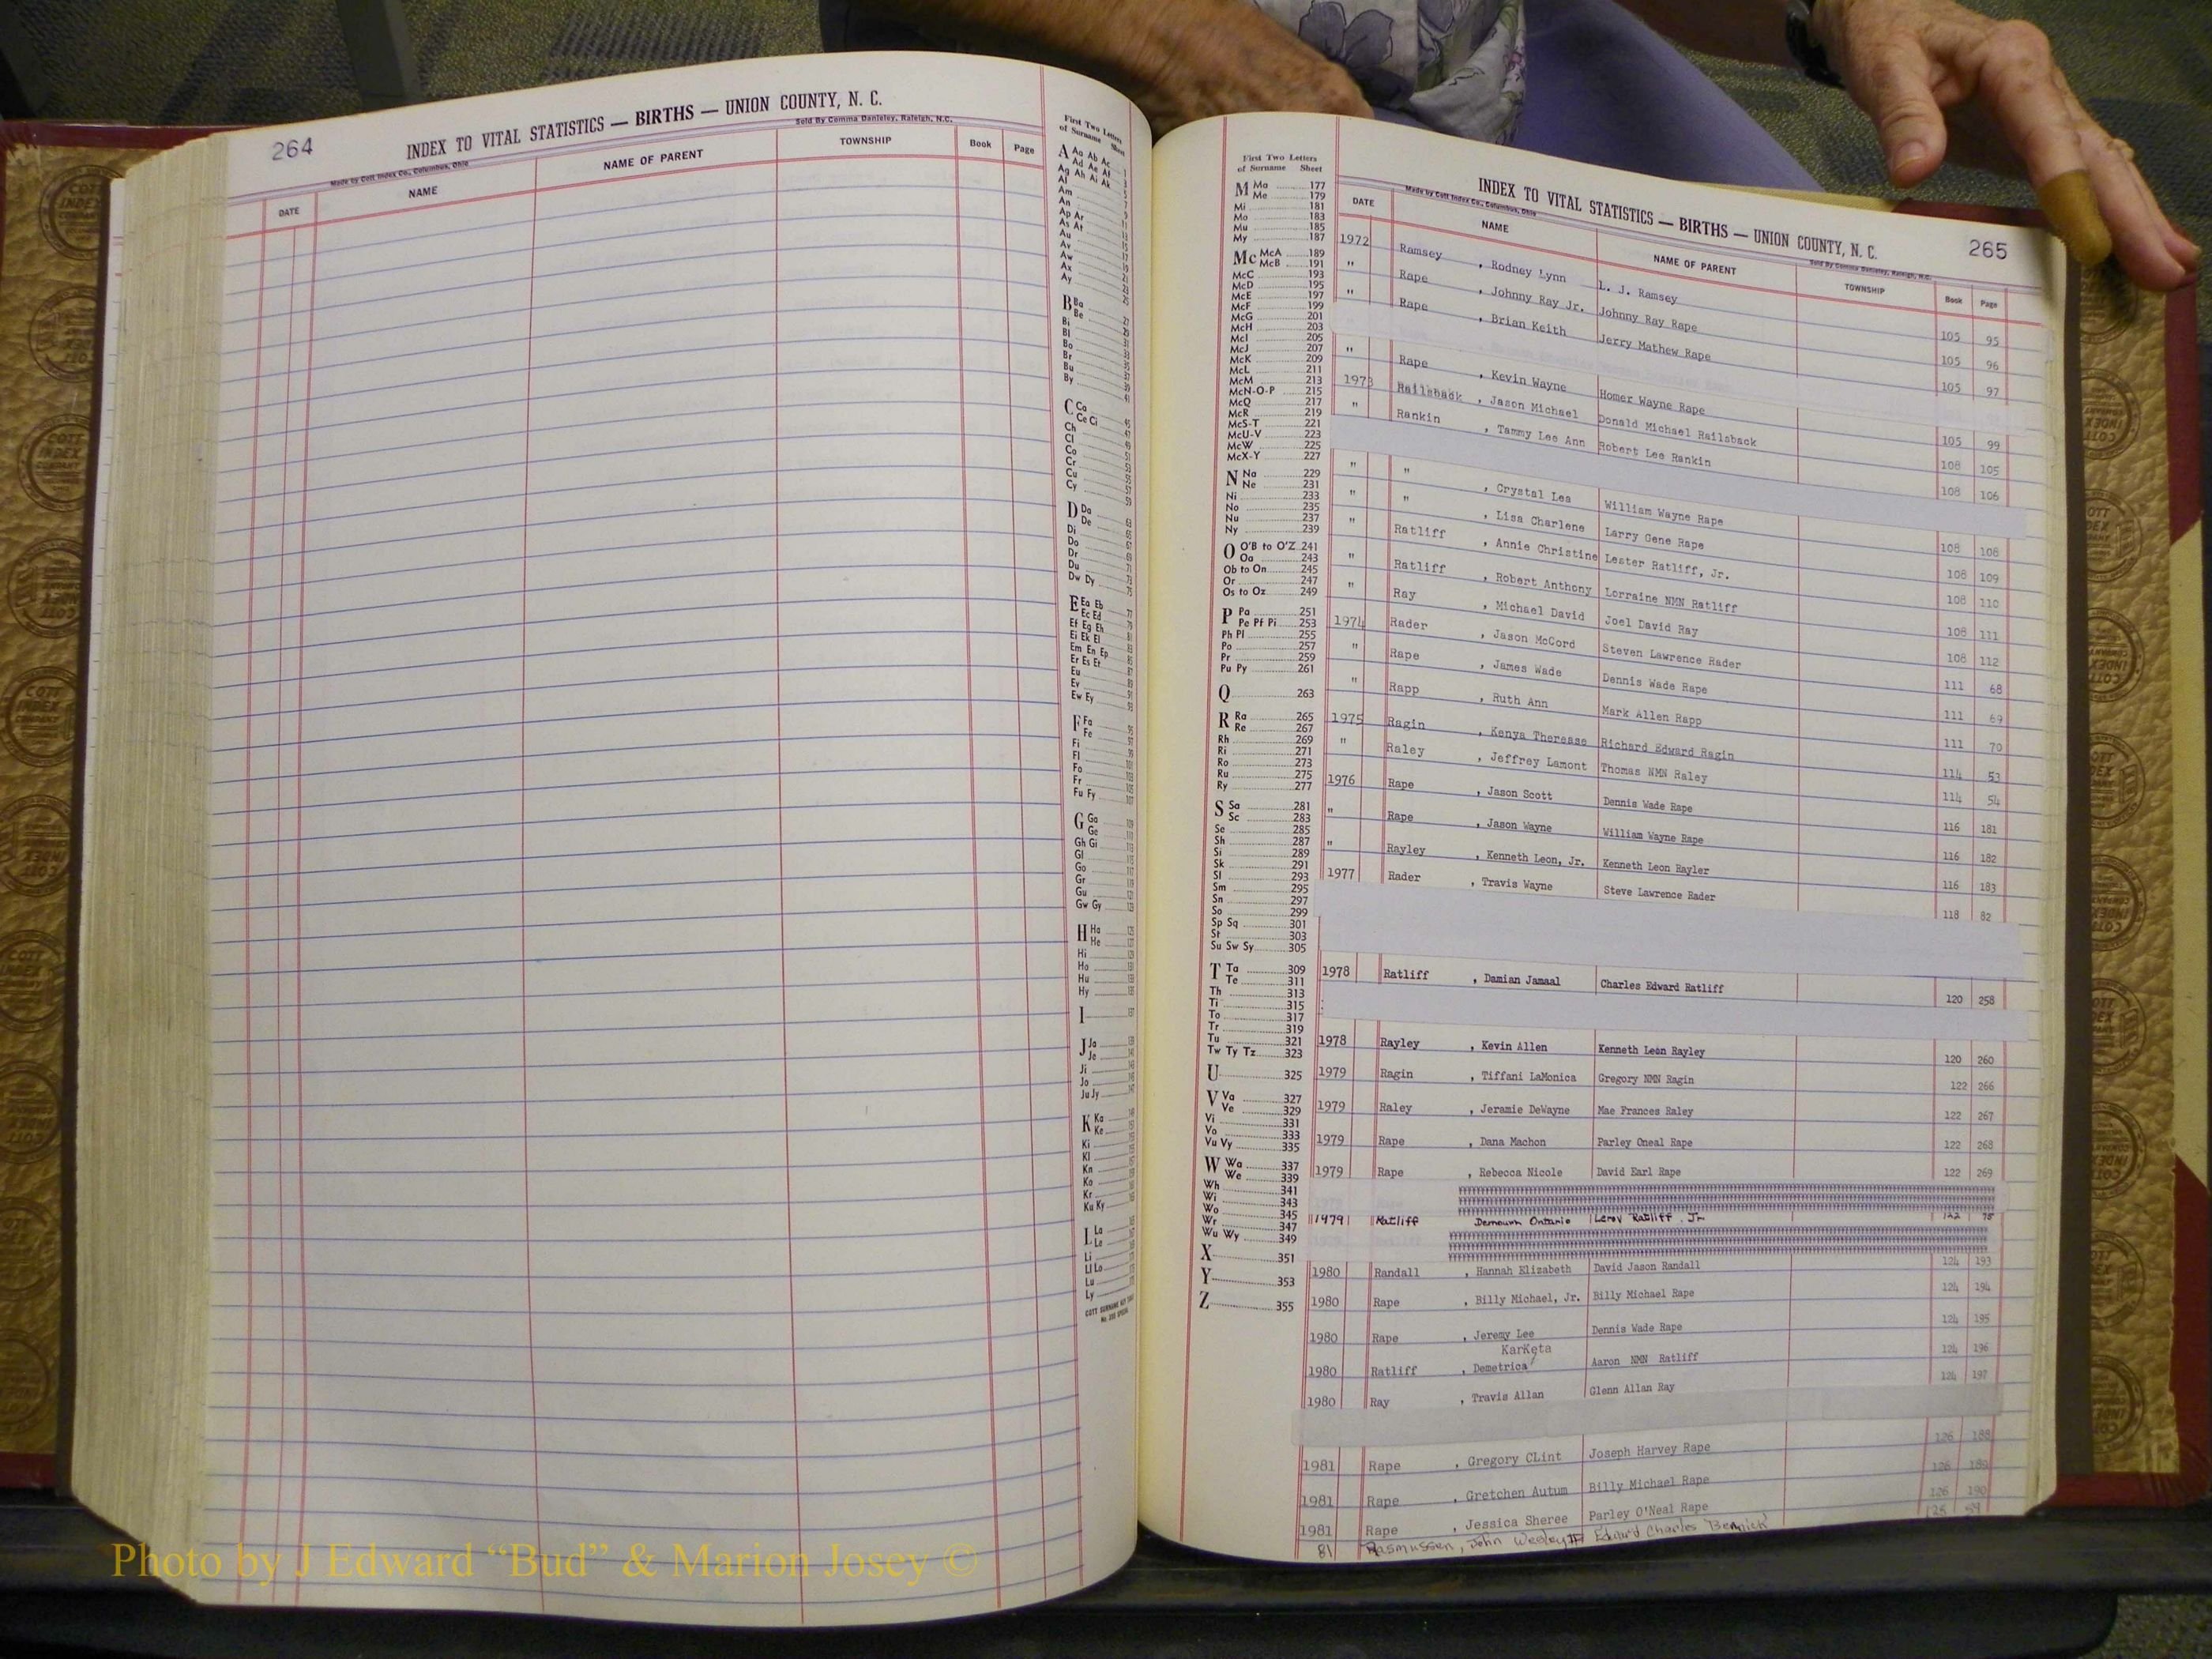 264
INDEX TO VITAL STATISTICS — BIRTHS — UNION COUNTY, N. C.
Made by Cott Index Co., Columbus, Ohio Sold By Comma Danieley, Raleigh, N.C.
DATE NAME NAME OF PARENT TOWNSHIP Book Page
First Two Letters
of Surname Sheet
A Aa Ab Ac
Ad Ae Af
Ag Ah Ai Ak
Al
Am
An
Ap Ar
As At
Au
Av
Aw
Ax
Ay
B Ba
Be
Bi
Bl
Bo
Br
Bu
By
C Ca
Ce Ci
Ch
Cl
Co
Cr
Cu
Cy
D Da
De
Di
Do
Dr
Du
Dw Dy
E Ea Eb
Ec Ed
Ef Eg Eh
Ei Ek El
Em En Ep
Er Es Et
Eu
Ev
Ew Ey
F Fa
Fe
Fi
Fl
Fo
Fr
Fu Fy
G Ga
Ge
Gh Gi
Gl
Go
Gr
Gu
Gw Gy
H Ha
He
Hi
Ho
Hu
Hy
I
J Ja
Je
Ji
Jo
Ju Jy
K Ka
Ke
Ki
Kl
Kn
Ko
Kr
Ku Ky
L La
Le
Li
Ll Lo
Lu
Ly
First Two Letters
of Surname Sheet
M Ma 177
Me 179
Mi 181
Mo 183
Mu 185
My 187
Mc McA 189
McB 191
McC 193
McD 195
McE 197
McF 199
McG 201
McH 203
McI 205
McJ 207
McK 209
McL 211
McM 213
McN-O-P 215
McQ 217
McR 219
McS-T 221
McU-V 223
McW 225
McX-Y 227
N Na 229
Ne 231
Ni 233
No 235
Nu 237
Ny 239
O O'B to O'Z 241
Oa 243
Ob to On 245
Or 247
Os to Oz 249
P Pa 251
Pe Pf Pi 253
Ph Pl 255
Po 257
Pr 259
Pu Py 261
Q 263
R Ra 265
Re 267
Rh 269
Ri 271
Ro 273
Ru 275
Ry 277
S Sa 281
Sc 283
Se 285
Sh 287
Si 289
Sk 291
Sl 293
Sm 295
Sn 297
So 299
Sp Sq 301
St 303
Su Sw Sy 305
T Ta 309
Te 311
Th 313
Ti 315
To 317
Tr 319
Tu 321
Tw Ty Tz 323
U 325
V Va 327
Ve 329
Vi 331
Vo 333
Vu Vy 335
W Wa 337
We 339
Wh 341
Wi 343
Wo 345
Wr 347
Wu Wy 349
X 351
Y 353
Z 355
INDEX TO VITAL STATISTICS — BIRTHS — UNION COUNTY, N. C. 265
Made by Cott Index Co., Columbus, Ohio Sold By Comma Danieley, Raleigh, N.C.
DATE NAME NAME OF PARENT TOWNSHIP Book Page
1972 Ramsey , Rodney Lynn L. J. Ramsey 105 95
" Rape , Johnny Ray Jr. Johnny Ray Rape 105 96
" Rape , Brian Keith Jerry Mathew Rape 105 97
" Rape , Kevin Wayne Homer Wayne Rape 105 99
1973 Railsback , Jason Michael Donald Michael Railsback 108 105
" Rankin , Tammy Lee Ann Robert Lee Rankin 108 106
" " , Crystal Lea William Wayne Rape 108 108
" " , Lisa Charlene Larry Gene Rape 108 109
" Ratliff , Annie Christine Lester Ratliff, Jr. 108 110
" Ratliff , Robert Anthony Lorraine NMN Ratliff 108 111
" Ray , Michael David Joel David Ray 108 112
1974 Rader , Jason McCord Steven Lawrence Rader 111 68
" Rape , James Wade Dennis Wade Rape 111 69
" Rapp , Ruth Ann Mark Allen Rapp 111 70
1975 Ragin , Kenya Therease Richard Edward Ragin 114 53
" Raley , Jeffrey Lamont Thomas NMN Raley 114 54
1976 Rape , Jason Scott Dennis Wade Rape 116 181
" Rape , Jason Wayne William Wayne Rape 116 182
" Rayley , Kenneth Leon, Jr. Kenneth Leon Rayler 116 183
1977 Rader , Travis Wayne Steve Lawrence Rader 118 82
1978 Ratliff , Damian Jamaal Charles Edward Ratliff 120 258
1978 Rayley , Kevin Allen Kenneth Leon Rayley 120 260
1979 Ragin , Tiffani LaMonica Gregory NMN Ragin 122 266
1979 Raley , Jeramie DeWayne Mae Frances Raley 122 267
1979 Rape , Dana Machon Parley Oneal Rape 122 268
1979 Rape , Rebecca Nicole David Earl Rape 122 269
1979 Ratliff Demourn Ontario Leroy Ratliff, Jr 122 75
1980 Randall , Hannah Elizabeth David Jason Randall 124 193
1980 Rape , Billy Michael, Jr. Billy Michael Rape 124 194
1980 Rape , Jeremy Lee Dennis Wade Rape 124 195
KarKeta
1980 Ratliff , Demetrica Aaron NMN Ratliff 124 196
1980 Ray , Travis Allan Glenn Allan Ray 124 197
1981 Rape , Gregory CLint Joseph Harvey Rape 126 188
1981 Rape , Gretchen Autum Billy Michael Rape 126 189
1981 Rape , Jessica Sheree Parley O'Neal Rape 126 190
81 Rasmussen, John Wesley Edward Charles
Photo by J Edward “Bud” & Marion Josey ©